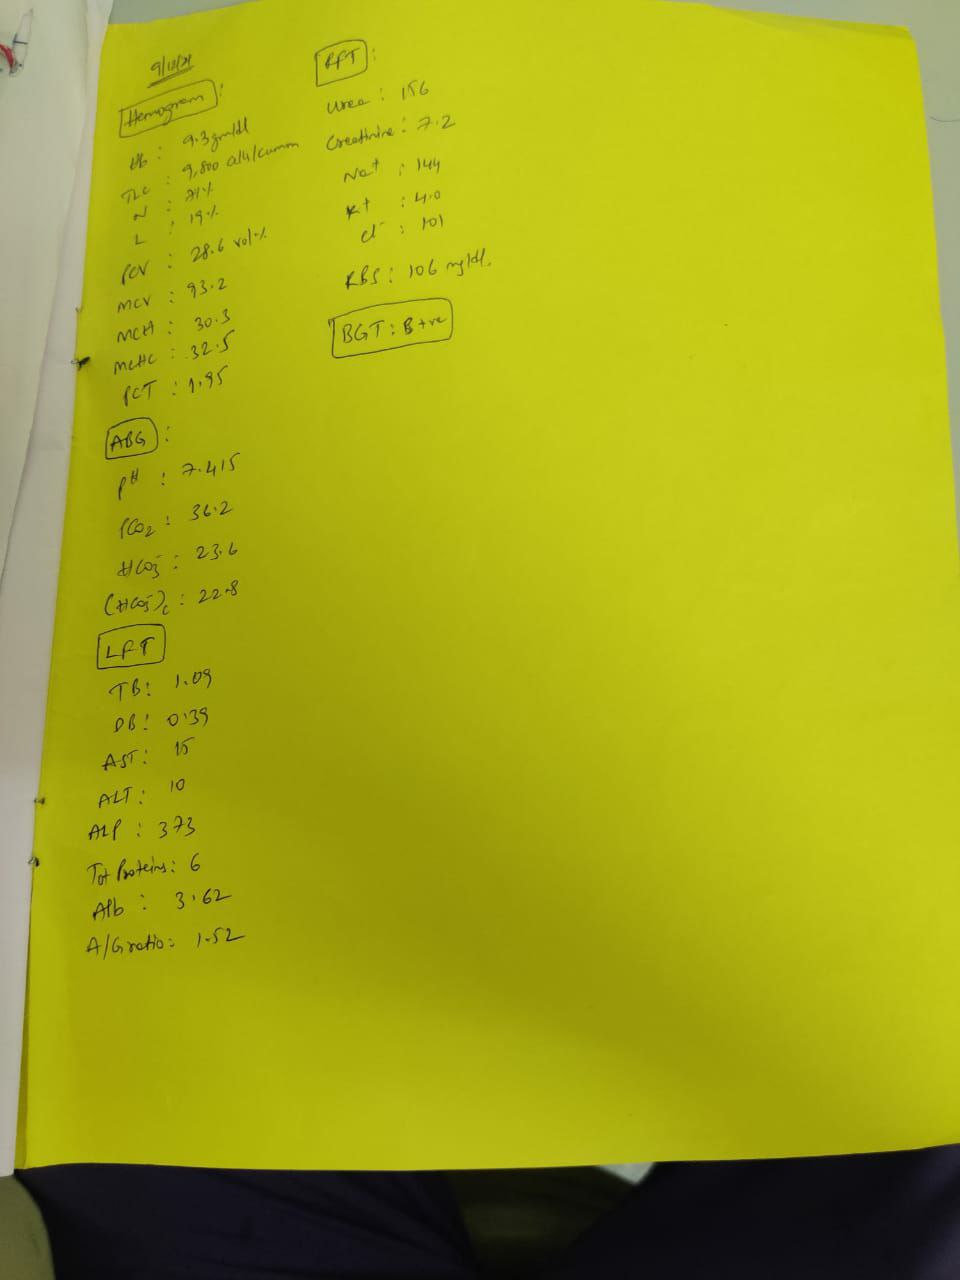 9/12/21
Hemogram :
Hb : 9.3 gm/dl
TLC : 9,800 cells/cumm
N : 71%
L : 19%
PCV : 28.6 vol%
MCV : 93.2
MCH : 30.3
MCHC : 32.5
PCT : 1.95
ABG :
pH : 7.415
PCO2 : 36.2
HCO3- : 23.6
(HCO3-)c : 22.8
LFT
TB : 1.09
DB : 0.39
AST : 15
ALT : 10
ALP : 373
Tot Proteins : 6
Alb : 3.62
A/G ratio : 1.52
RFT :
Urea : 156
Creatinine : 7.2
Na+ : 144
K+ : 4.0
Cl- : 101
RBS : 106 mg/dl.
BGT : B +ve